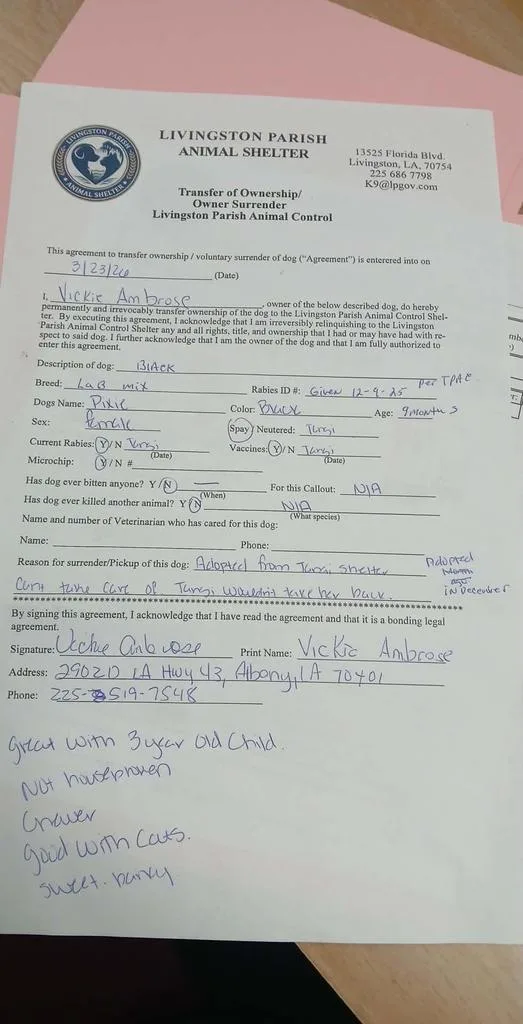 LIVINGSTON PARISH
ANIMAL SHELTER
LIVINGSTON PARISH
ANIMAL SHELTER
13525 Florida Blvd.
Livingston, LA, 70754
225 686 7798
K9@lpgov.com
Transfer of Ownership/
Owner Surrender
Livingston Parish Animal Control
This agreement to transfer ownership / voluntary surrender of dog ("Agreement") is enterered into on
3/23/26 (Date)
I, Vickie Ambrose, owner of the below described dog, do hereby
permanently and irrevocably transfer ownership of the dog to the Livingston Parish Animal Control Shel-
ter. By executing this agreement, I acknowledge that I am irreversibly relinquishing to the Livingston
Parish Animal Control Shelter any and all rights, title, and ownership that I had or may have had with re-
spect to said dog. I further acknowledge that I am the owner of the dog and that I am fully authorized to
enter this agreement.
Description of dog: BlAcK
Breed: LaB mix Rabies ID#: Given 12-9-25 per TPAC
Dogs Name: Pixie Color: Black Age: 9months
Sex: female Spay/ Neutered: Tangi
Current Rabies: Y/N Tangi (Date) Vaccines: Y/N Tangi (Date)
Microchip: Y/N #
Has dog ever bitten anyone? Y/N (When) For this Callout: N/A
Has dog ever killed another animal? Y/N N/A (What species)
Name and number of Veterinarian who has cared for this dog:
Name: Phone:
Reason for surrender/Pickup of this dog: Adopted from Tangi shelter
Adopted
month
ago
in December
Cant take care of Tangi wouldn't take her back.
By signing this agreement, I acknowledge that I have read the agreement and that it is a bonding legal
agreement.
Signature: Vickie Ambrose Print Name: Vickie Ambrose
Address: 29020 LA Hwy 43, Albany, LA 70401
Phone: 225-519-7548
great with 3 year old child.
Not houseproken
Chewer
good with cats.
sweet. barky